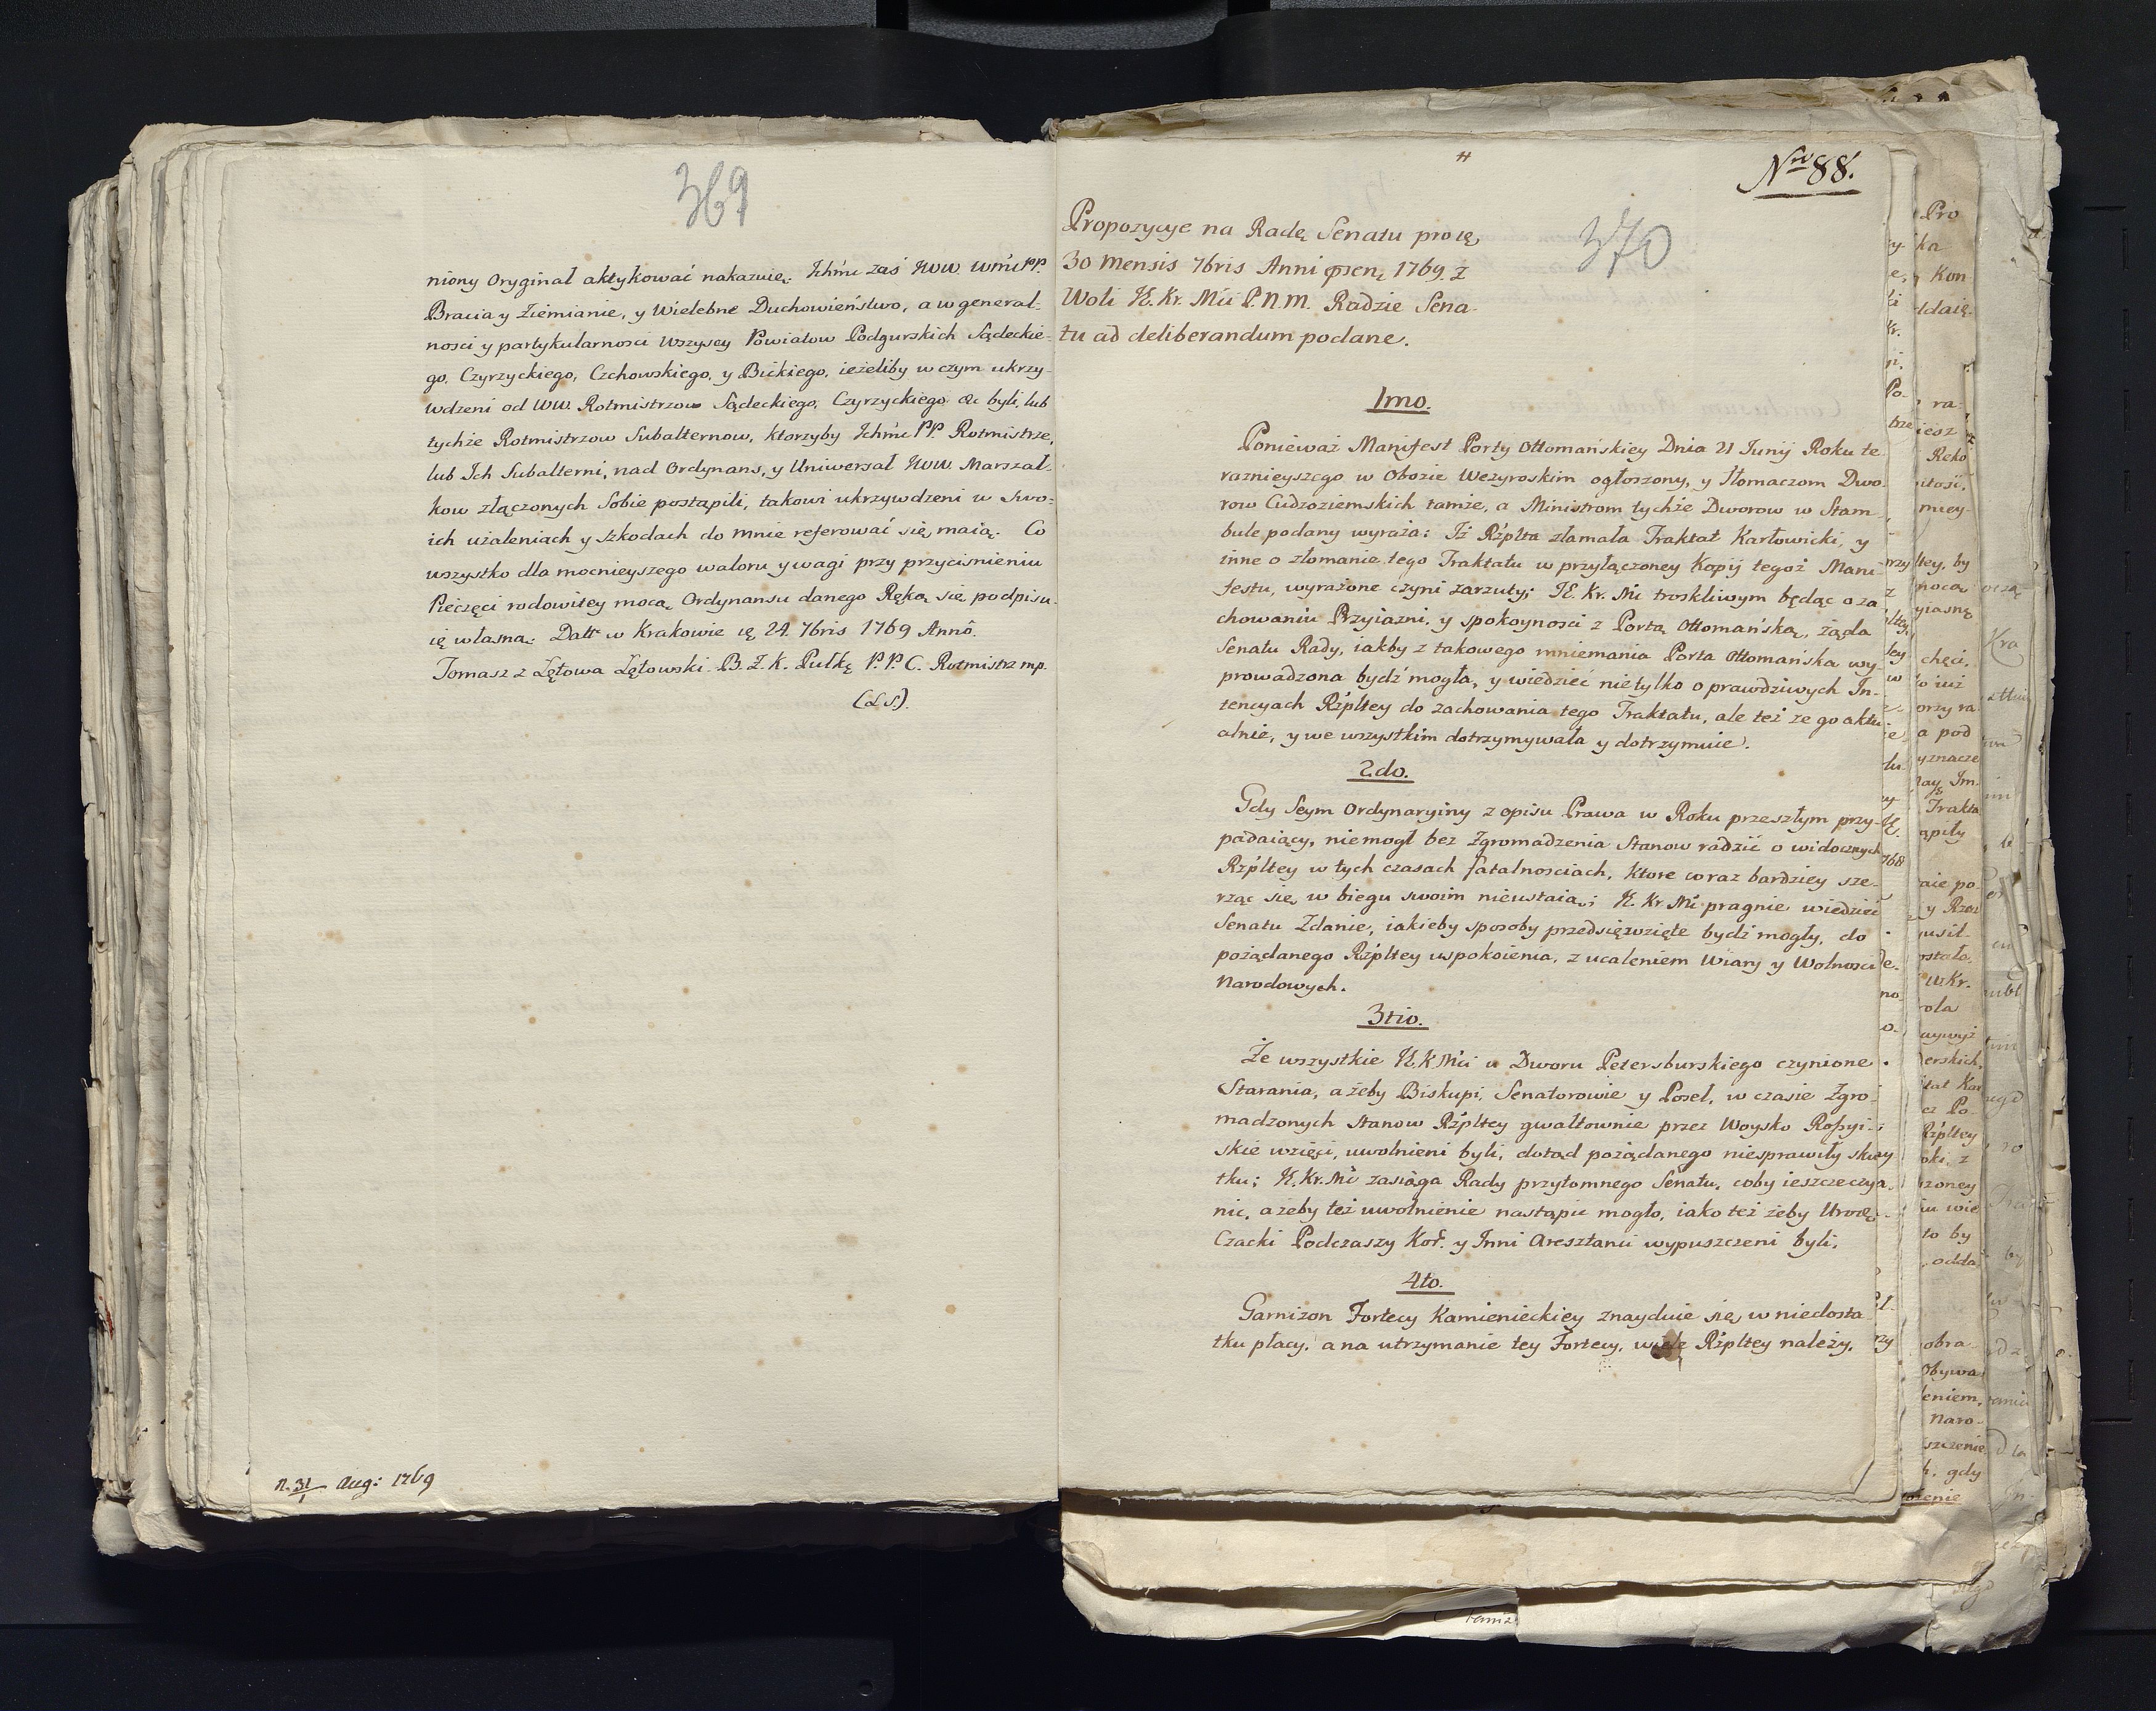 369
niony Oryginał aktykować nakazuię. Ichmć zaś JWW. WmćPP.
Bracia y Ziemianie, y Wielebne Duchowieństwo, a w general-
nosci y partykularnosci Wszyscy Powiatow Podgurskich Sądeckie-
go, Czyrzyckiego, Czchowskiego, y Bickiego, ieżeliby w czym ukrzy-
wdzeni od WW. Rotmistrzow Sądeckiego, Czyrzyckiego &c byli, lub
tychże Rotmistrzow Subalternow, ktorzyby Ichmć PP. Rotmistrze,
lub Ich Subalterni, nad Ordynans, y Uniwersał JWW. Marszał-
kow złączonych Sobie postąpili, takowi ukrzywdzeni w Swo-
ich użaleniach y szkodach do mnie referować się maią. Co
wszystko dla mocnieyszego waloru y wagi przy przycisnieniu
Pieczęci rodowitey mocą Ordynansu danego Ręką się podpisu-
ię własną. Datt w Krakowie ię 24. 7bris 1769 Annô.
Tomasz z Łętowa Łętowski B. Z. K. Pułkę P. P. C. Rotmistrz mp.
(LS).
n. 31 Aug: 1769
1
Nro 88.
370
Propozycye na Radę Senatu pro ię
30 Mensis 7bris Anni præn, 1769. z
Woli JK. Kr. Mći P. N. M. Radzie Sena-
tu ad deliberandum podane.
1mo.
Ponieważ Manifest Porty Ottomańskiey Dnia 21 Junij Roku te-
raznieyszego w Obozie Wezyroskim ogłoszony, y Tłomaczom Dwo-
row Cudzoziemskich tamże, a Ministrom tychże Dworow w Stam-
bule podany wyraża: Iż Rżplta złamała Traktat Karłowicki, y
inne o złomanie tego Traktatu w przyłączoney Kopij tegoż Mani-
festu, wyrażone czyni zarzuty; JK. Kr. Mć troskliwym będąc o za
chowaniu Przyiazni, y spokoynosci z Portą Ottomańską, żąda
Senatu Rady, iakby z takowego mniemania Porta Ottomańska wy-
prowadzona bydź mogła, y wiedzieć nietylko o prawdziwych In-
tencyach Rżpltey do zachowania tego Traktatu, ale też ze go aktu-
alnie, y we wszystkim dotrzymywała y dotrzymuie.
2do.
Gdy Seym Ordynaryiny z opisu Prawa w Roku przeszłym przy-
padaiący, niemogł bez Zgromadzenia Stanow radzić o widocznych
Rżpltey w tych czasach fatalnosciach, Ktore coraz bardziey sze-
rząc się, w biegu swoim nieustaią; JK. Kr. Mć pragnie wiedzieć
Senatu Zdanie, iakieby sposoby przedsięwzięte bydź mogły, do
pożądanego Rżpltey uspokoienia, z ucaleniem Wiary y Wolnosci
Narodowych.
3tio.
Że wszystkie JK. K Mći u Dworu Petersburskiego czynione
Starania, ażeby Biskupi, Senatorowie y Poseł, w czasie Zgro-
madzonych Stanow Rżpltey gwałtownie przez Woysko Roßyi-
skie wzięci, uwolnieni byli, dotąd pożądanego niesprawiły sku-
tku; JK. Kr. Mć zasiąga Rady przytomnego Senatu, coby ieszcze czy-
nić, ażeby też uwolnienie nastąpić mogło, iako też żeby Urodz.
Czacki Podczaszy Kor. y Inni Aresztańci wypuszczeni byli.
4to.
Garnizon Fortecy Kamienieckiey znayduie się w niedosta
tku płacy, a na utrzymanie tey Fortecy, wiele Rżpltey należy,